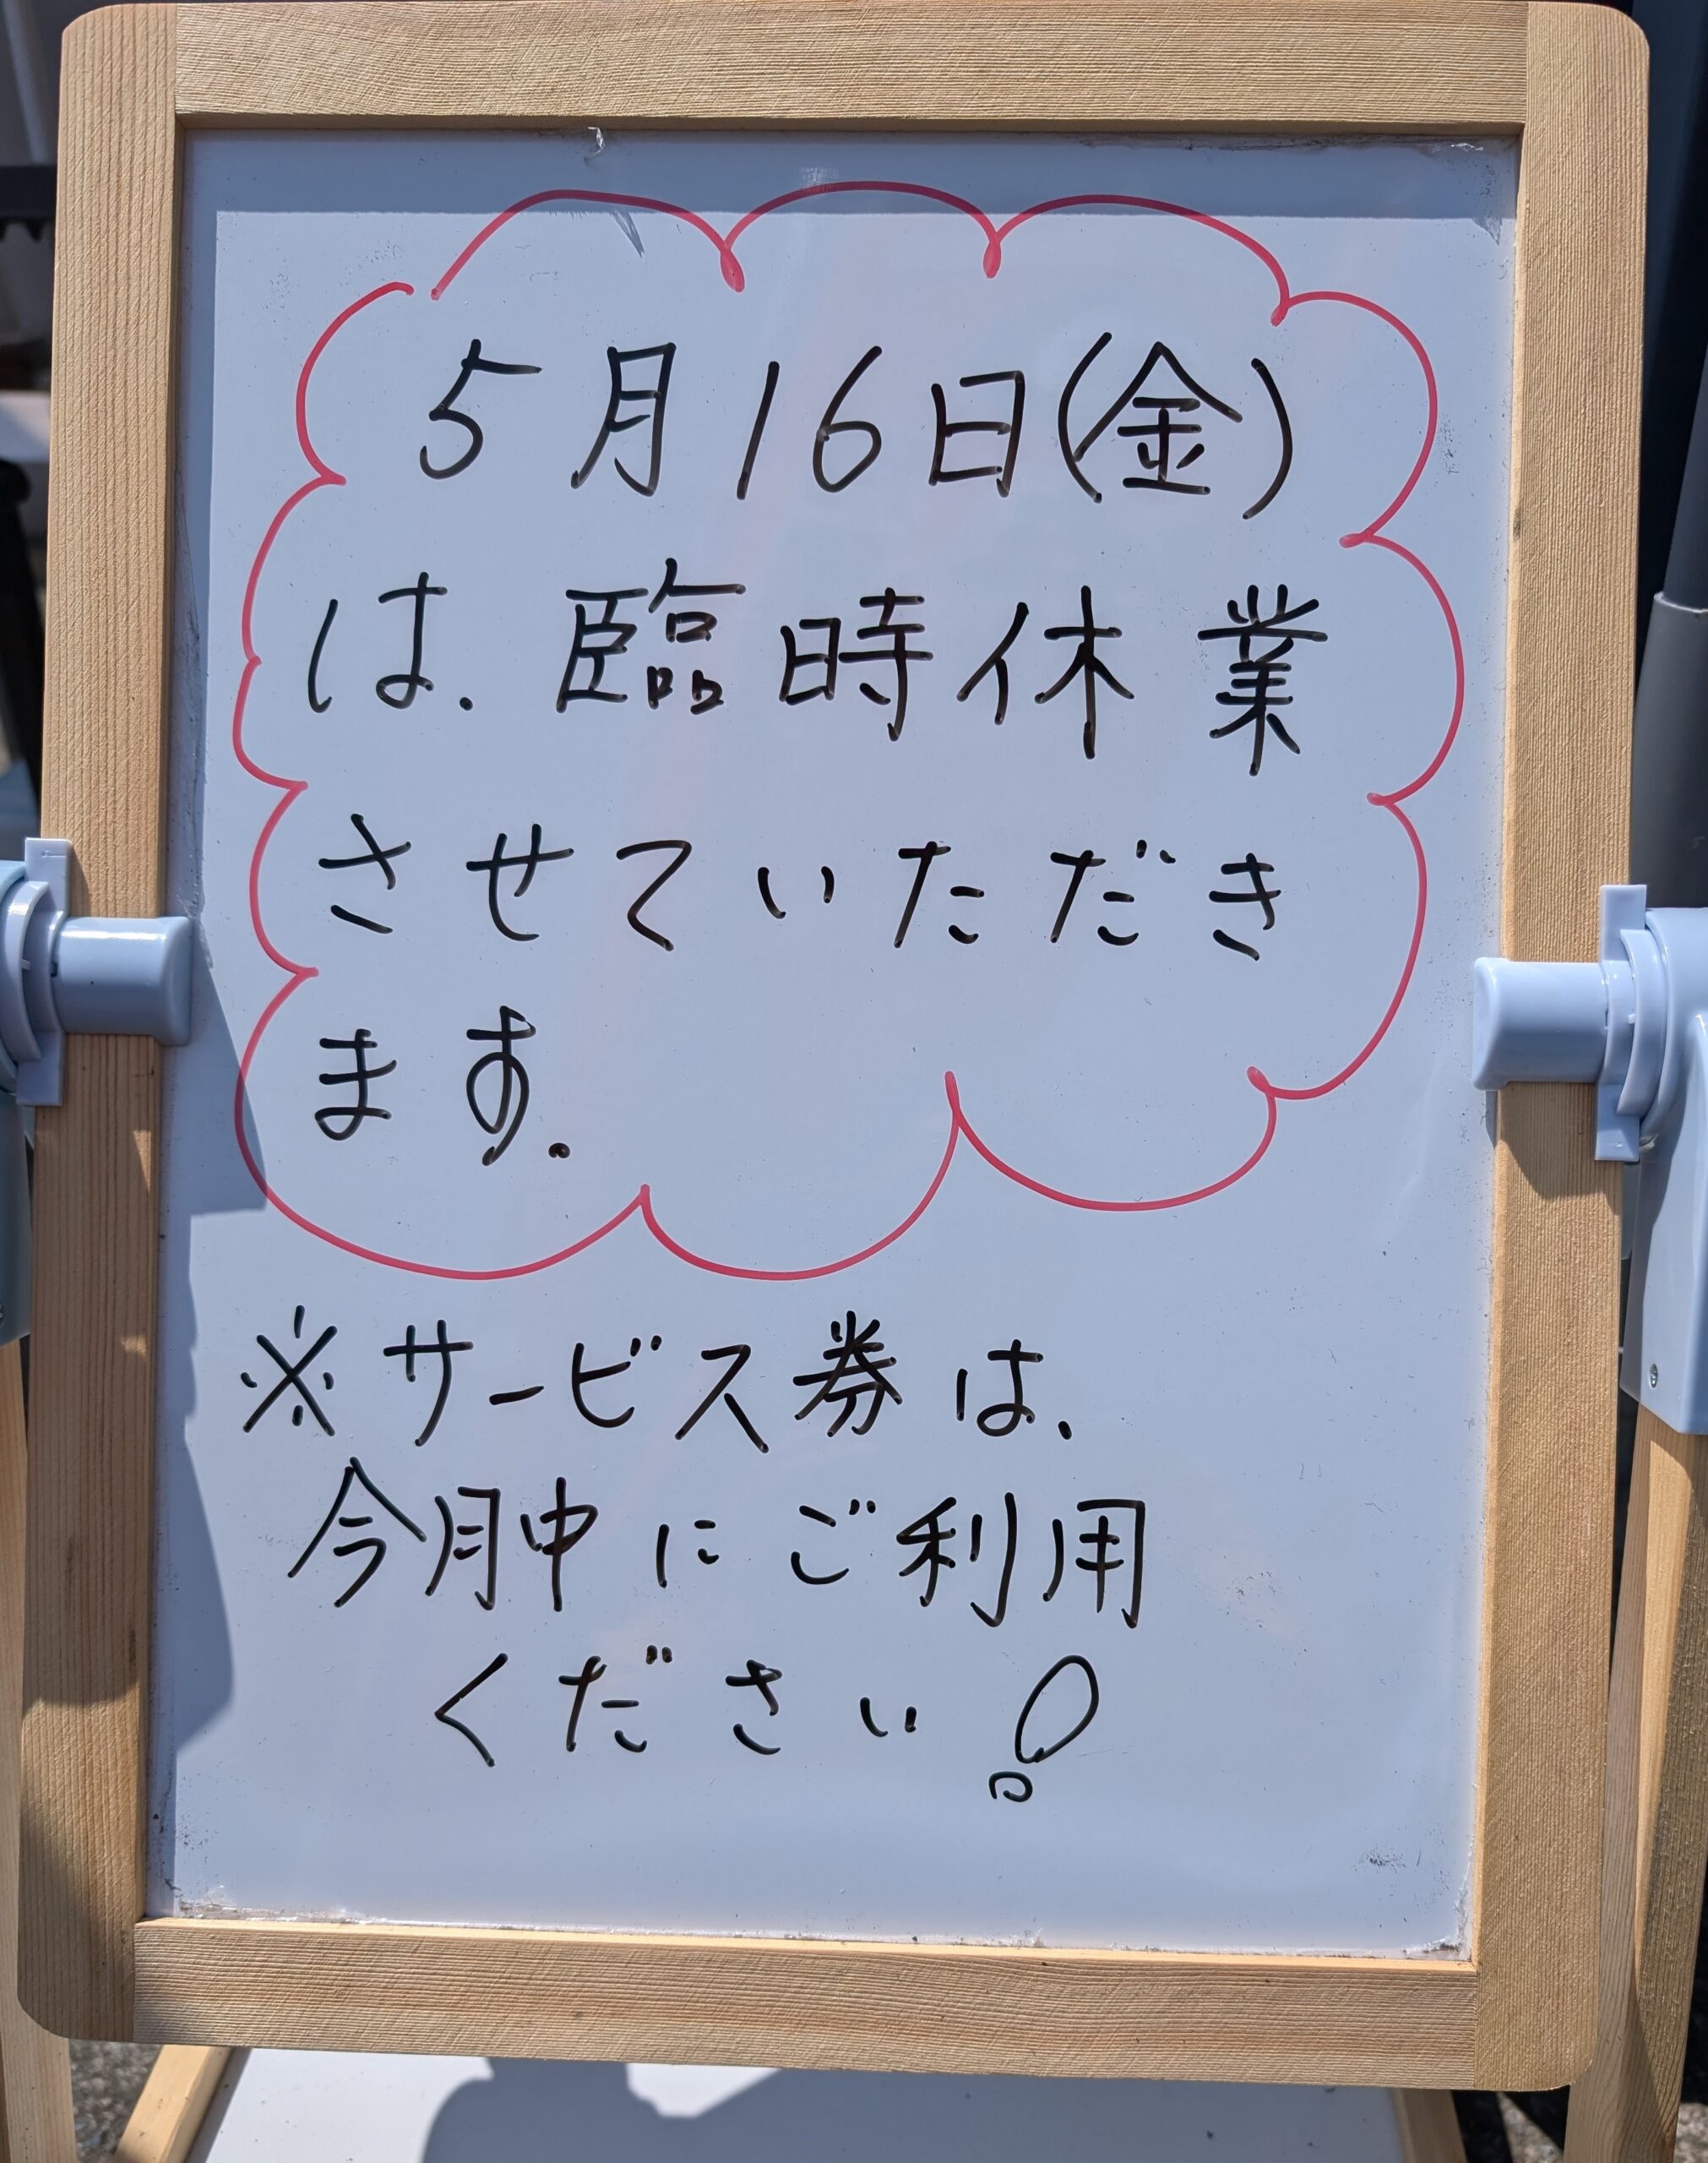 5月16日(金)
は、臨時休業
させていただき
ます。
※サービス券は、
今月中にご利用
ください!